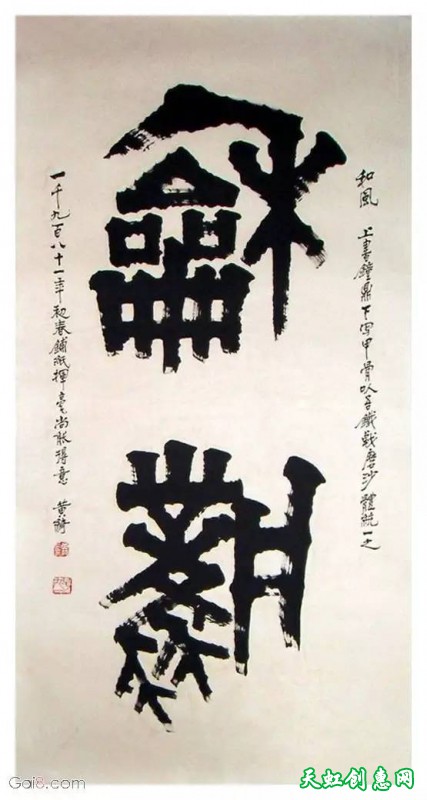 龢風
和風 上書鐘鼎下寫甲骨以吾鐵戟磨沙體統一之
一千九百八十一年初春鋪紙揮毫尚能得意 黄綺
Goi8.com
天虹创惠网